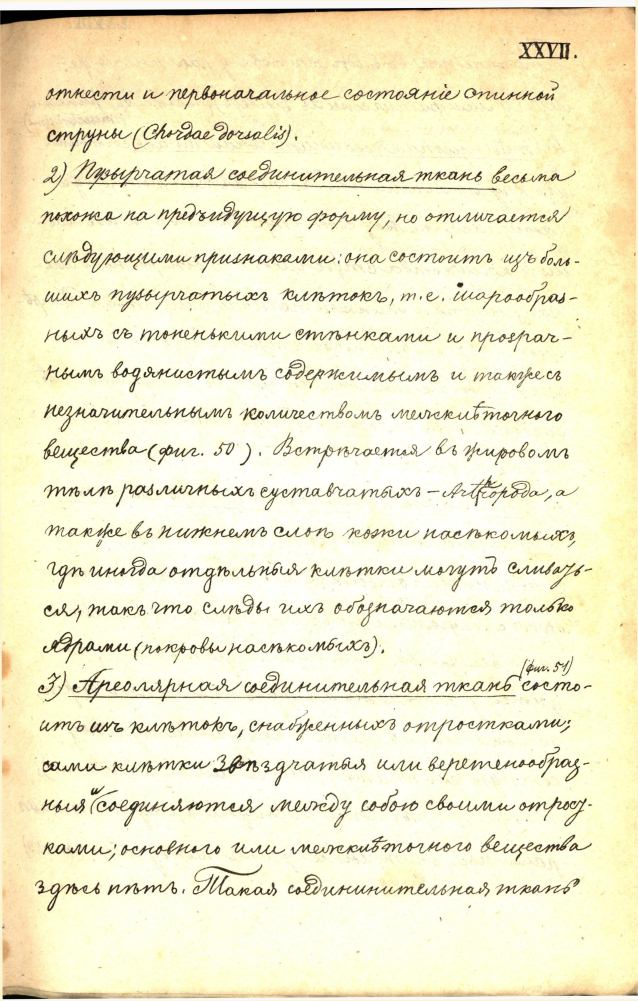 XXVII.
отнести и первоначальное состояніе спинной
струны (Chordae dorsalis).
2) Пузырчатая соединительная ткань весьма
похожа на предъидущую форму, но отличается
слѣдующими признаками: она состоитъ изъ боль-
шихъ пузырчатыхъ клѣтокъ, т.е. шарообраз-
ныхъ съ тоненькими стѣнками и прозрач-
нымъ водянистымъ содержимымъ и также съ
незначительнымъ количествомъ межклѣточного
вещества (фиг. 50). Встрѣчается въ жировомъ
тѣлѣ различныхъ суставчатыхъ – Arthropoda, а
также въ нижнемъ слоѣ кожи насѣкомыхъ,
гдѣ иногда отдѣльныя клѣтки могутъ сливать-
ся, такъ что слѣды ихъ обозначаются только
ядрами (покровы насѣкомыхъ).
3) Ареолярная соединительная ткань (фиг. 51) состо-
итъ изъ клѣтокъ, снабженныхъ отростками;
сами клѣтки звѣздчатыя или веретенообраз-
ныя и соединяются между собою своими отрост-
ками; основного или межклѣточного вещества
здѣсь нѣтъ. Такая соединнительная ткань